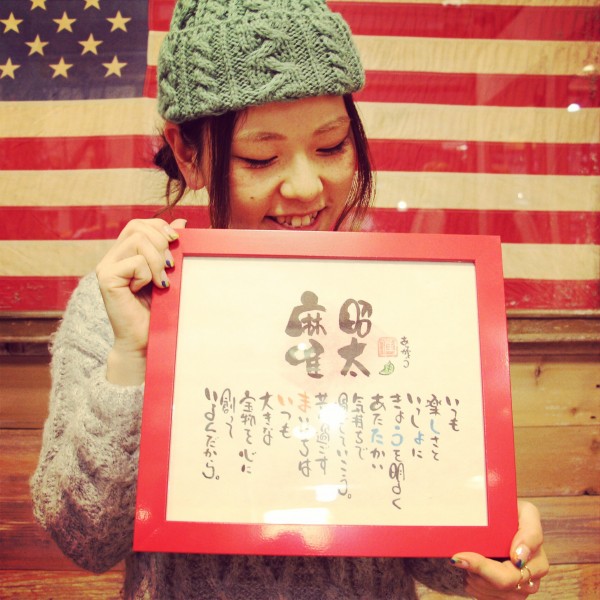 昭太
麻唯
いつも
楽しさと
いっしょに
きょうを明るく
あたたかい
気持ちで
ていこう。
過ごす
まいにちは
いつも
大きな
宝物を心に
創って
いくだから。